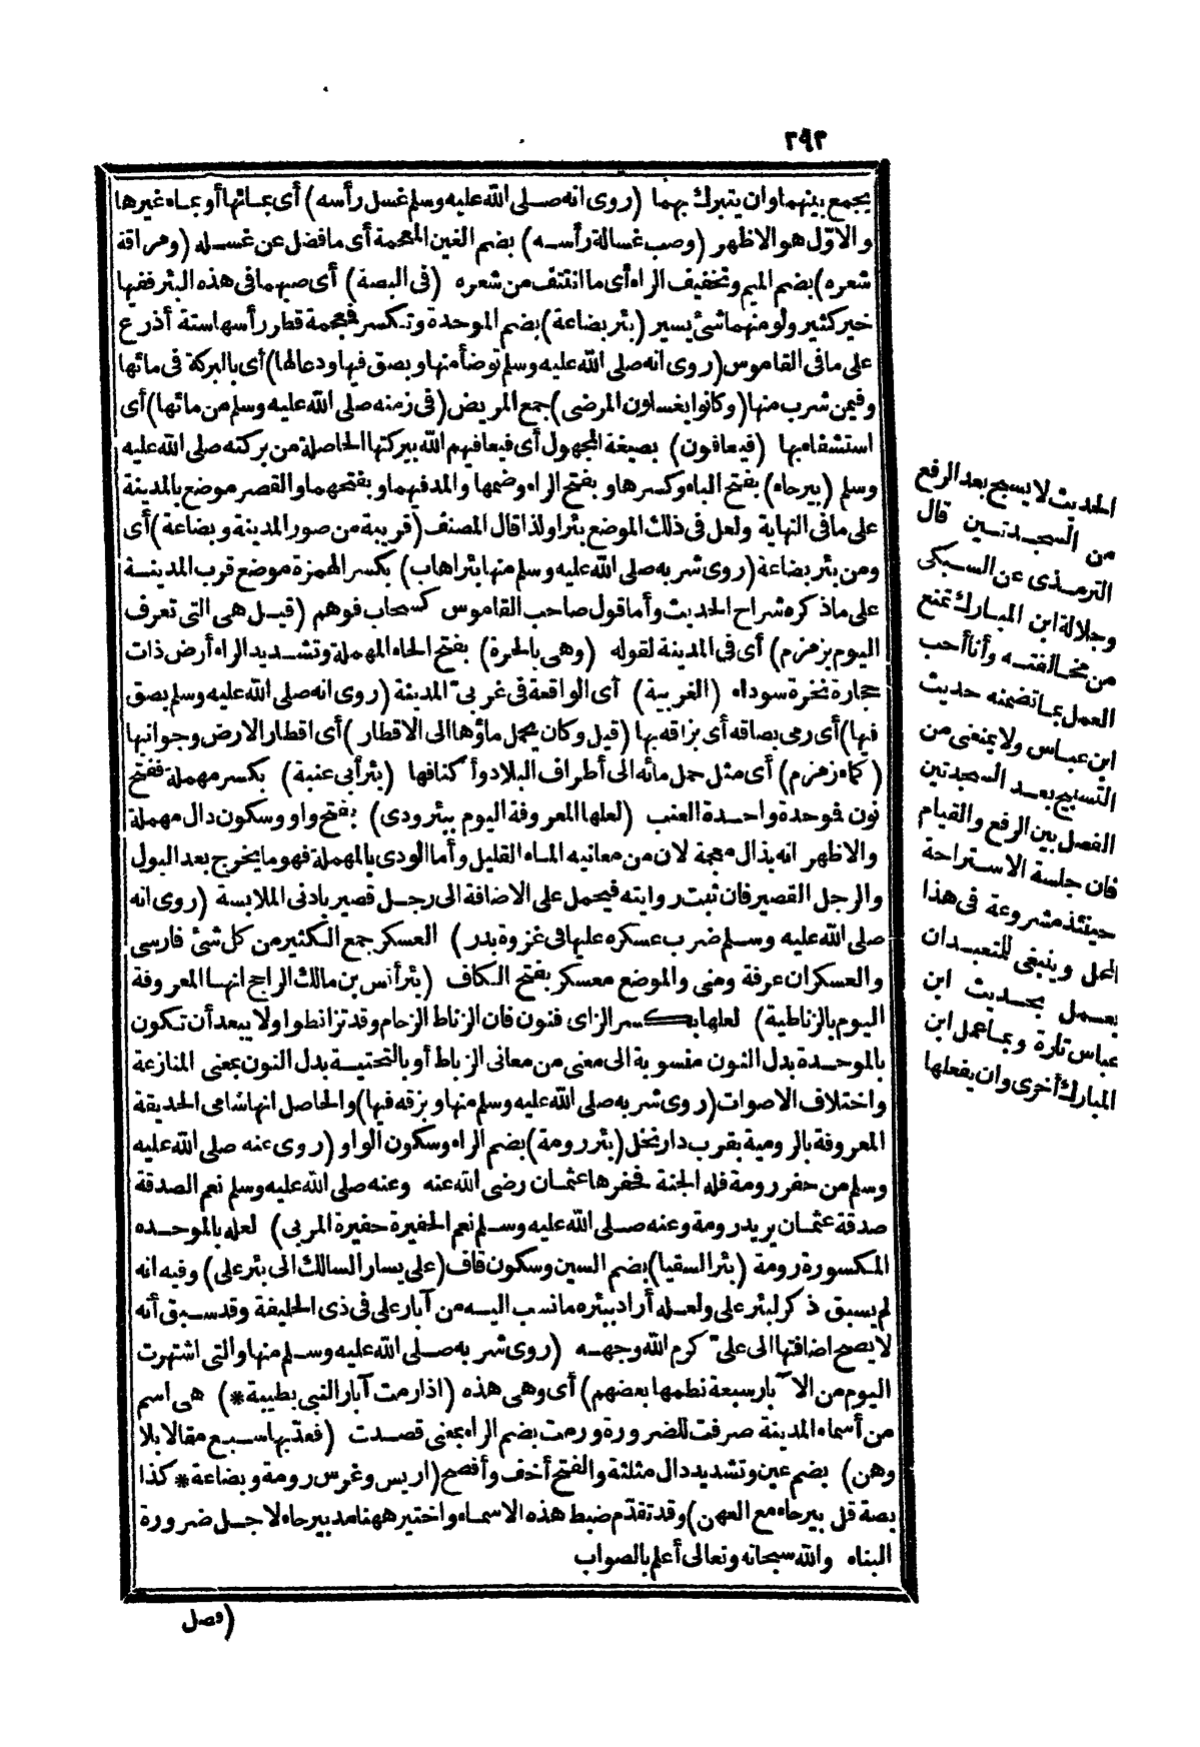 ٢٩٣
يجمع بينهما وان يتبرك بهما (روى انه صلى الله عليه وسلم غسل رأسه) أى بمائها أو بماء غيرها
والاوّل هو الاظهر (وصب غسالة رأسه) بضم الغين المعجمة أى ما فضل عن غسله (ومراقة
شعره) بضم الميم وتخفيف الراء أى ما انتتف من شعره (فى البصة) أى صبهما فى هذه البئر ففيها
خير كثير ولو منهما شئ يسير (بئر بضاعة) بضم الموحدة وتكسر فمعجمة قطر رأسها ستة أذرع
على ما فى القاموس (روى انه صلى الله عليه وسلم توضأ منها وبصق فيها ودعا لها) أى بالبركة فى مائها
وفيمن شرب منها (وكانوا يغسلون المرضى) جمع المريض (فى زمنه صلى الله عليه وسلم من مائها) أى
استشفاء بها (فيعافون) بصيغة المجهول أى فيعافيهم الله ببركتها الحاصلة من بركته صلى الله عليه
وسلم (بيرحاء) بفتح الباء وكسرها وبفتح الراء وضمها والمد فيهما وبفتحهما والقصر موضع بالمدينة
على ما فى النهاية ولعل فى ذلك الموضع بئرا ولذا قال المصنف (قريبة من صور المدينة وبضاعة) أى
ومن بئر بضاعة (روى شربه صلى الله عليه وسلم منها بئر اهاب) بكسر الهمزة موضع قرب المدينة
على ما ذكره شراح الحديث وأما قول صاحب القاموس كسحاب فوهم (قيل هى التى تعرف
اليوم بزمزم) أى فى المدينة لقوله (وهى بالحرة) بفتح الحاء المهملة وتشديد الراء أرض ذات
حجارة نخرة سوداء (الغربية) أى الواقعة فى غربى المدينة (روى انه صلى الله عليه وسلم بصق
فيها) أى رمى بصاقه أى بزاقه بها (قيل وكان يحمل ماؤها الى الاقطار) أى اقطار الارض وجوانبها
(كماء زمزم) أى مثل حمل مائه الى أطراف البلاد وأكنافها (بئر أبى عنبة) بكسر مهملة ففتح
نون فوحدة واحدة العنب (لعلها المعروفة اليوم ببئر ودى) بفتح واو وسكون دال مهملة
والاظهر انه بذال معجمة لان من معانيه الماء القليل وأما الودى بالمهملة فهو ما يخرج بعد البول
والرجل القصير فان ثبت روايته فيحمل على الاضافة الى رجل قصير بادنى الملابسة (روى انه
صلى الله عليه وسلم ضرب عسكره عليها فى غزوة بدر) العسكر جمع الكثير من كل شئ فارسى
والعسكران عرفة ومنى والموضع معسكر بفتح الكاف (بئر أنس بن مالك الراجح انها المعروفة
اليوم بالزناطية) لعلها بكسر الزاى فنون فان الزناط الزحام وقد تزانطوا ولا يبعد أن تكون
بالموحدة بدل النون منسوبة الى معنى من معانى الزباط أو بالتحتية بدل النون بمعنى المنازعة
واختلاف الاصوات (روى شربه صلى الله عليه وسلم منها وبزقه فيها) والحاصل انها شامى الحديقة
المعروفة بالرومية بقرب دار نخل (بئر رومة) بضم الراء وسكون الواو (روى عنه صلى الله عليه
وسلم من حفر رومة فله الجنة فحفرها عثمان رضى الله عنه وعنه صلى الله عليه وسلم نعم الصدقة
صدقة عثمان يريد رومة وعنه صلى الله عليه وسلم نعم الحفيرة حفيرة المربى) لعله بالموحده
المكسورة رومة (بئر السقيا) بضم السين وسكون قاف (على يسار السالك الى بئر على) وفيه انه
لم يسبق ذكر لبئر على ولعله أراد ببئره ما نسب اليه من آبار على فى ذى الحليفة وقد سبق أنه
لا يصح اضافتها الى على كرم الله وجهه (روى شربه صلى الله عليه وسلم منها والتى اشتهرت
اليوم من الآبار سبعة نظمها بعضهم) أى وهى هذه (اذا رمت آبار النبى بطيبة*) هى اسم
من أسماء المدينة صرفت للضرورة ورمت بضم الراء بمعنى قصدت (فعدّتها سبع مقالا بلا
وهن) بضم عين وتشديد دال مثلثة والفتح أخف وأفصح (اريس وغرس رومة وبضاعة * كذا
بصة قل بيرحاء مع العهن) وقد تقدّم ضبط هذه الاسماء واختير ههنا مد بيرحاء لاجل ضرورة
البناء والله سبحانه وتعالى أعلم بالصواب
(فصل
الحديث لا يسبح بعد الرفع
من السجدتين قال
الترمذى عن السبكى
وجلالة ابن المبارك تمنع
من مخالفته وأنا أحب
العمل بما تضمنه حديث
ابن عباس ولا يمنعنى من
التسبيح بعد السجدتين
الفصل بين الرفع والقيام
فان جلسة الاستراحة
حينئذ مشروعة فى هذا
المحل وينبغى للمتعبد ان
يعمل بحديث ابن
عباس تارة وبما عمل ابن
المبارك أخرى وان يفعلها